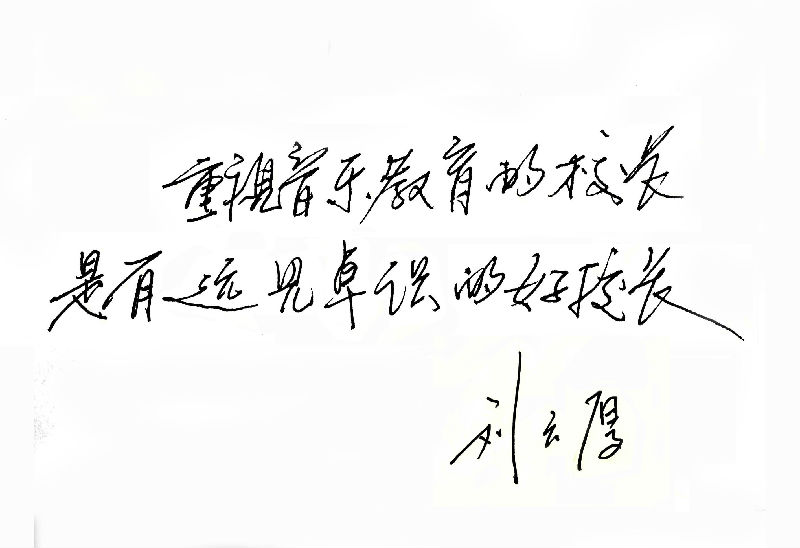 重视音乐教育的校长
是有远见卓识的好校长
刘云厚